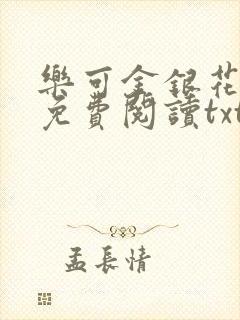 樂可金銀花
免費閱讀txt
孟長情